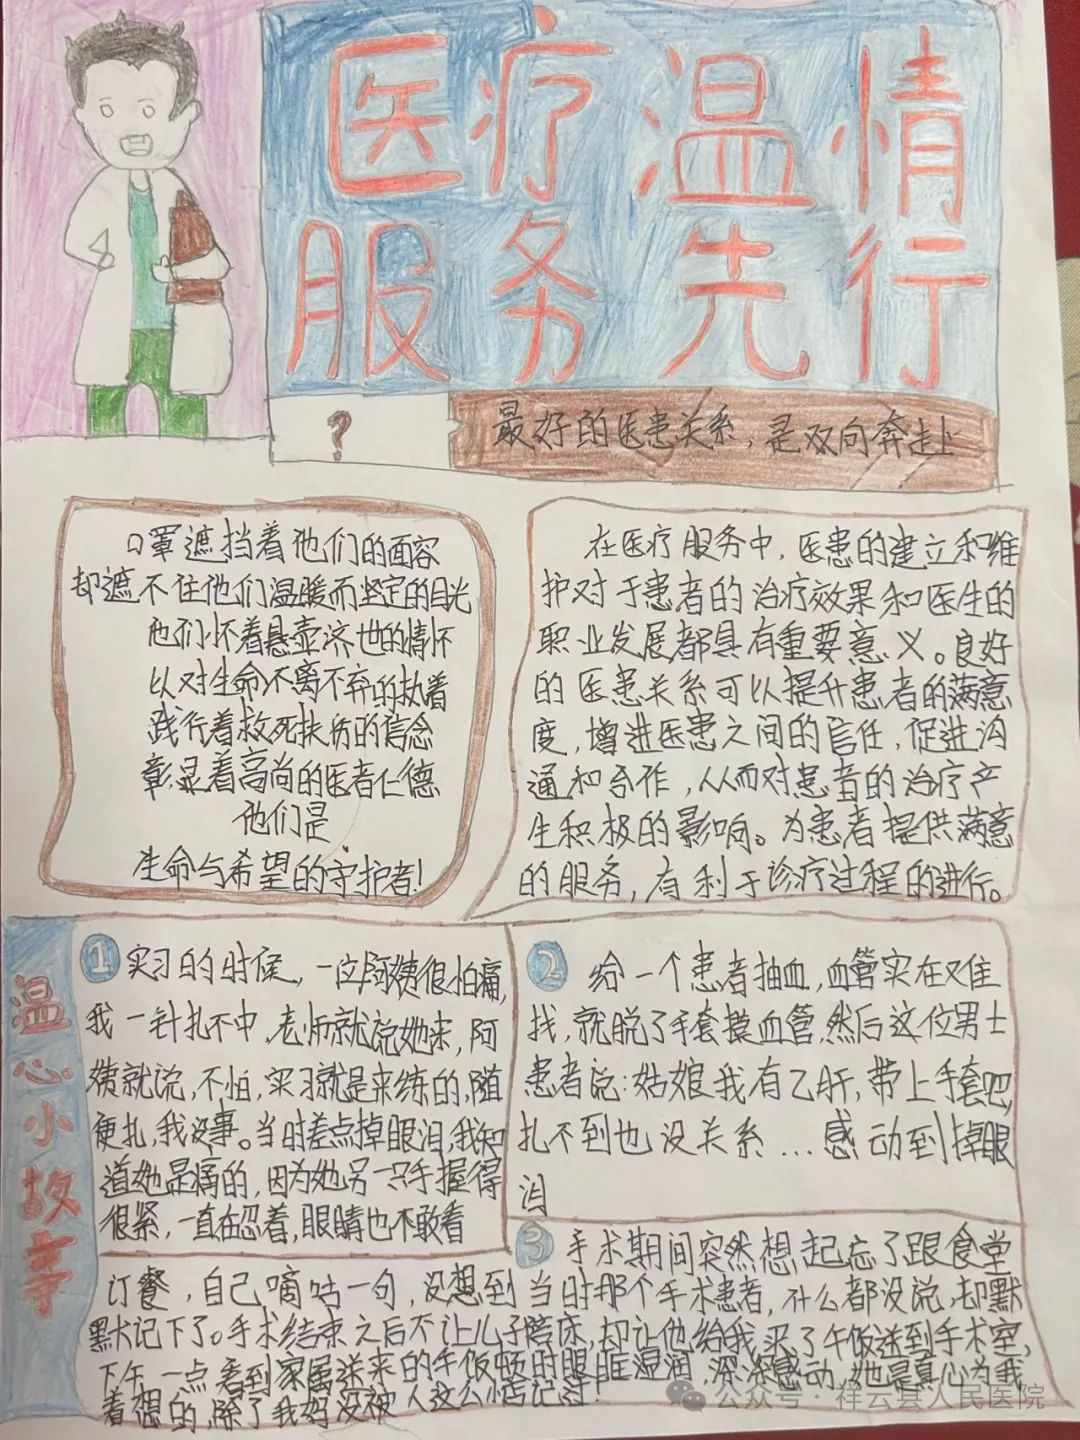 医疗温情
服务先行
?
最好的医患关系，是双向奔赴
口罩遮挡着他们的面容
却遮不住他们温暖而坚定的目光
他们怀着悬壶济世的情怀
以对生命不离不弃的执着
践行着救死扶伤的信念
彰显着高尚的医者仁德
他们是
生命与希望的守护者!
在医疗服务中，医患的建立和维
护对于患者的治疗效果和医生的
职业发展都具有重要意义。良好
的医患关系可以提升患者的满意
度，增进医患之间的信任，促进沟
通和合作，从而对患者的治疗产
生积极的影响。为患者提供满意
的服务，有利于诊疗过程的进行。
温心小故事
1 实习的时候，一位阿姨很怕痛，
我一针扎不中，老师就说她来，阿
姨就说，不怕，实习就是来练的，随
便扎，我没事。当时差点掉眼泪，我知
道她是痛的，因为她另一只手握得
很紧，一直在忍着，眼睛也不敢看
2 给一个患者抽血，血管实在难
找，就脱了手套摸血管，然后这位男士
患者说：姑娘我有乙肝，带上手套吧，
扎不到也没关系...感动到掉眼
泪
3 手术期间突然想起忘了跟食堂
订餐，自己嘀咕一句，没想到当时那个手术患者，什么都没说，却默
默记下了。手术结束之后不让儿子陪床，却让他给我买了午饭送到手术室，
下午一点看到家属送来的午饭顿时眼眶湿润，深深感动，她是真心为我
着想的，除了我好没被人这么惦记过!
公众号·祥云县人民医院